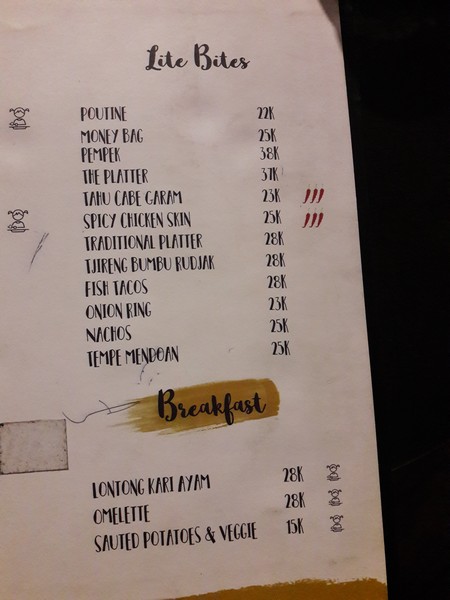 Lite Bites
POUTINE 22K
MONEY BAG 25K
PEMPEK 38K
THE PLATTER 37K
TAHU CABE GARAM 23K
SPICY CHICKEN SKIN 25K
TRADITIONAL PLATTER 28K
TJIRENG BUMBU RUDJAK 28K
FISH TACOS 28K
ONION RING 23K
NACHOS 25K
TEMPE MENDOAN 25K
Breakfast
LONTONG KARI AYAM 28K
OMELETTE 28K
SAUTED POTATOES & VEGGIE 15K